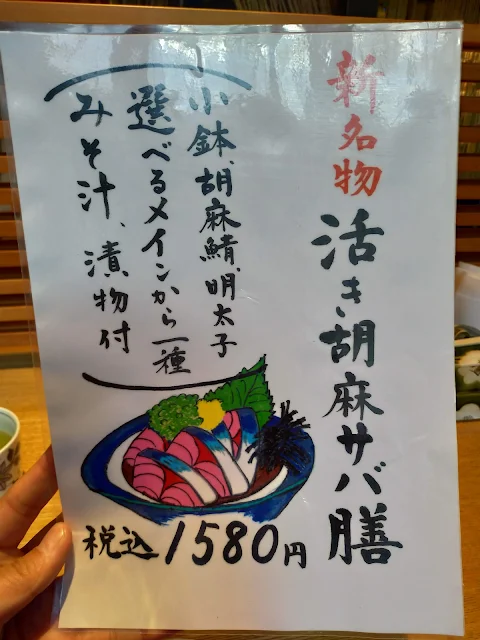 新名物
活き胡麻サバ膳
小鉢、胡麻鯖、明太子
選べるメインから一種
みそ汁、漬物付
税込1580円